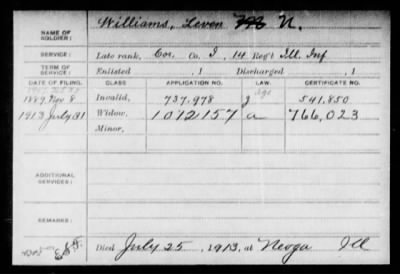 NAME OF SOLDIER: Williams, Leven N.
SERVICE: Late rank, Cor. Co. I, 14 Reg't Ill. Inf
TERM OF SERVICE: Enlisted , 1 Discharged , 1
DATE OF FILING. CLASS. APPLICATION NO. LAW. CERTIFICATE NO.
age
1889 Nov 8 Invalid, 737.978 g 541.850
1913 July 31 Widow, 1012157 a 766,023
Minor,
ADDITIONAL SERVICES:
REMARKS:
Died July 25, 1913, at Neoga Ill